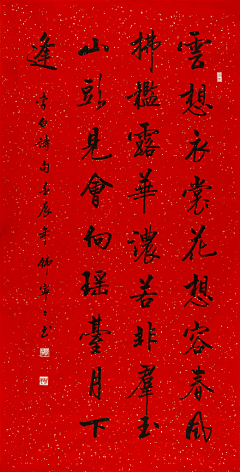 雲想衣裳花想容春風
拂檻露華濃若非羣玉
山頭見會向瑶臺月下
逢
李白詩句